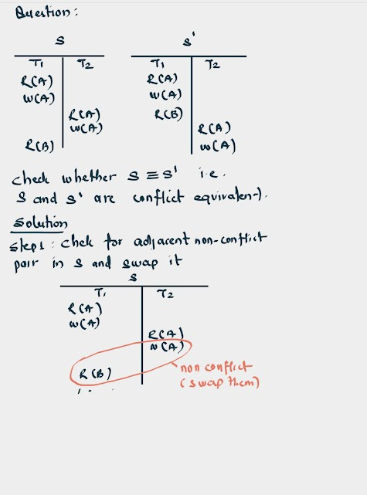 Question:
S S'
T1 T2 T1 T2
R(A) R(A)
W(A) W(A)
R(A) R(B)
W(A) R(A)
R(B) W(A)
check whether S ≡ S' i.e.
S and S' are conflict equivalent.
Solution
step1: chek for adjacent non-conflict
pair in S and swap it
S
T1 T2
R(A)
W(A)
R(A)
W(A)
R(B)
non conflict
(swap them)